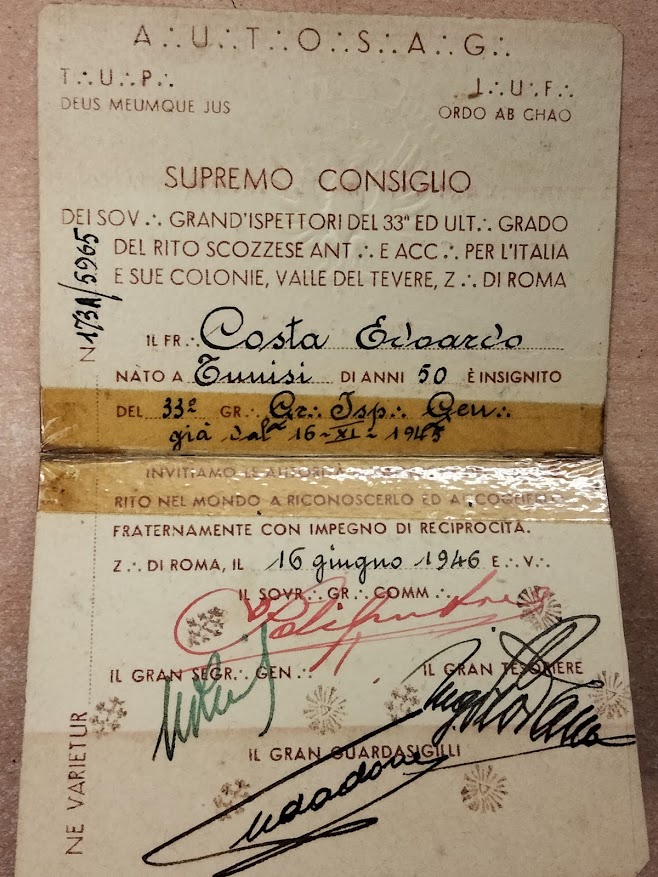 A∴U∴T∴O∴S∴A∴G∴
T∴U∴P∴ I∴U∴F∴
DEUS MEUMQUE JUS ORDO AB CHAO
SUPREMO CONSIGLIO
DEI SOV∴ GRAND'ISPETTORI DEL 33º ED ULT∴ GRADO
DEL RITO SCOZZESE ANT∴ E ACC∴ PER L'ITALIA
E SUE COLONIE, VALLE DEL TEVERE, Z∴ DI ROMA
N 173A/5965
IL FR∴ Costa Edoardo
NATO A Tunisi DI ANNI 50 È INSIGNITO
DEL 33º GR∴ Gr∴ Isp∴ Gen∴
già dal 16-XI-1945
INVITIAMO LE AUTORITÀ
RITO NEL MONDO A RICONOSCERLO ED
FRATERNAMENTE CON IMPEGNO DI RECIPROCITÀ.
Z∴ DI ROMA, IL 16 giugno 1946 E∴V∴
IL SOVR∴ GR∴ COMM∴
IL GRAN SEGR∴ GEN∴ IL GRAN TESORIERE
IL GRAN GUARDASIGILLI
NE VARIETUR